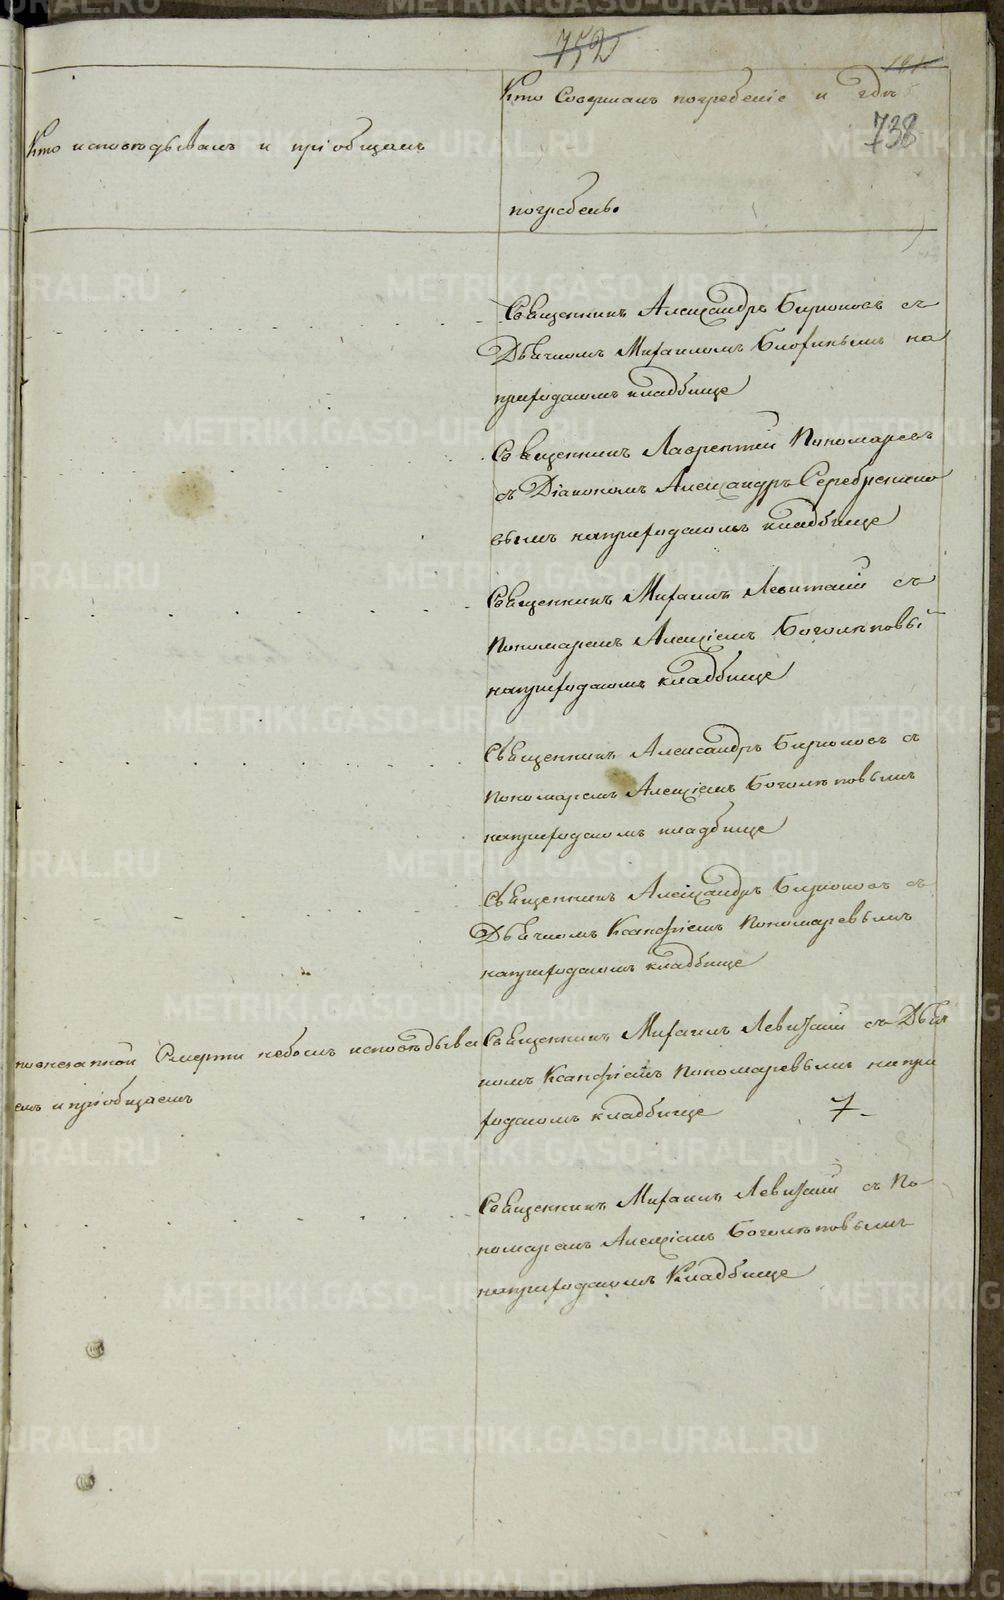 752
181
738
Кто исповѣдывалъ и пріобщалъ
Кто Совершалъ погребеніе и гдѣ
погребенъ.
Священникъ Александръ Бирюковъ съ
Дьячкомъ Михаиломъ Бюфинымъ на
приходскомъ кладбище
Священникъ Лаврентій Пономаревъ
съ Діакономъ Александръ Серебренико
вымъ наприходскомъ кладбище
Священникъ Михаилъ Левитскій съ
Пономаремъ Алексіемъ Боголѣповы
наприходскомъ кладбище
Священникъ Александръ Бирюковъ съ
Пономаремъ Алексіемъ Боголѣповымъ
наприходскомъ кладбище
Священникъ Александръ Бирюковъ съ
Дьячкомъ Ксанфіемъ Пономаревымъ
наприходскомъ кладбище
повнезапной Смерти небылъ исповѣдыва
емъ и пріобщаемъ
Священникъ Михаилъ Левитскій съ Дьяч
комъ Ксанфіемъ Пономаревымъ напри
ходскомъ кладбище 7-
Священникъ Михаилъ Левитскій съ По
номаремъ Алексіемъ Боголѣповымъ
наприходскомъ Кладбище
METRIKI.GASO-URAL.RU